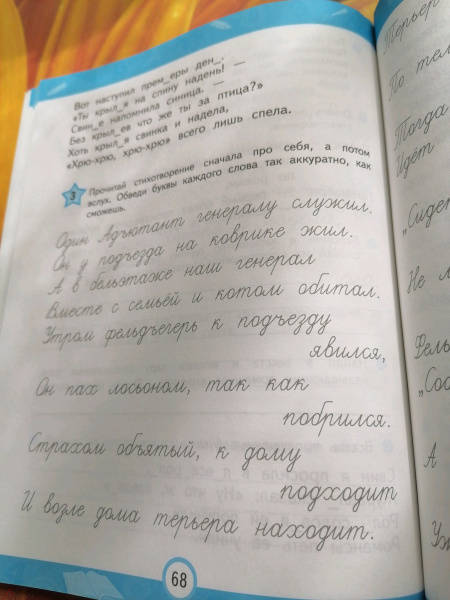 Вот наступил прем_еры ден_:
«Ты крыл_я на спину надень! —
Свин_е напомнила синица. —
Без крыл_ев что же ты за птица?»
Хоть крыл_я свинка и надела,
«Хрю-хрю, хрю-хрю» всего лишь спела.
3 Прочитай стихотворение сначала про себя, а потом
вслух. Обведи буквы каждого слова так аккуратно, как
сможешь.
Один Адъютант генералу служил.
Он у подъезда на коврике жил.
А в бельэтаже наш генерал
Вместе с семьёй и котом обитал.
Утром фельдъегерь к подъезду
явился,
Он пах лосьоном, так как
побрился.
Страхом объятый, к дому
подходит
И возле дома терьера находит.
68
Терьер
По тел
Тогда
Идёт
„Сидет
Не л
Фель
„Сос
А
Уж